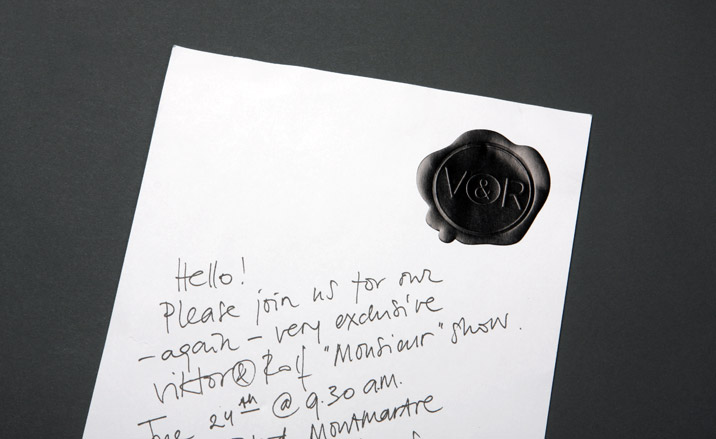 V&R
Hello!
Please join us for our
-again- very exclusive
Viktor&Rolf "Monsieur" show.
24th @ 9.30 a.m.
Montmartre